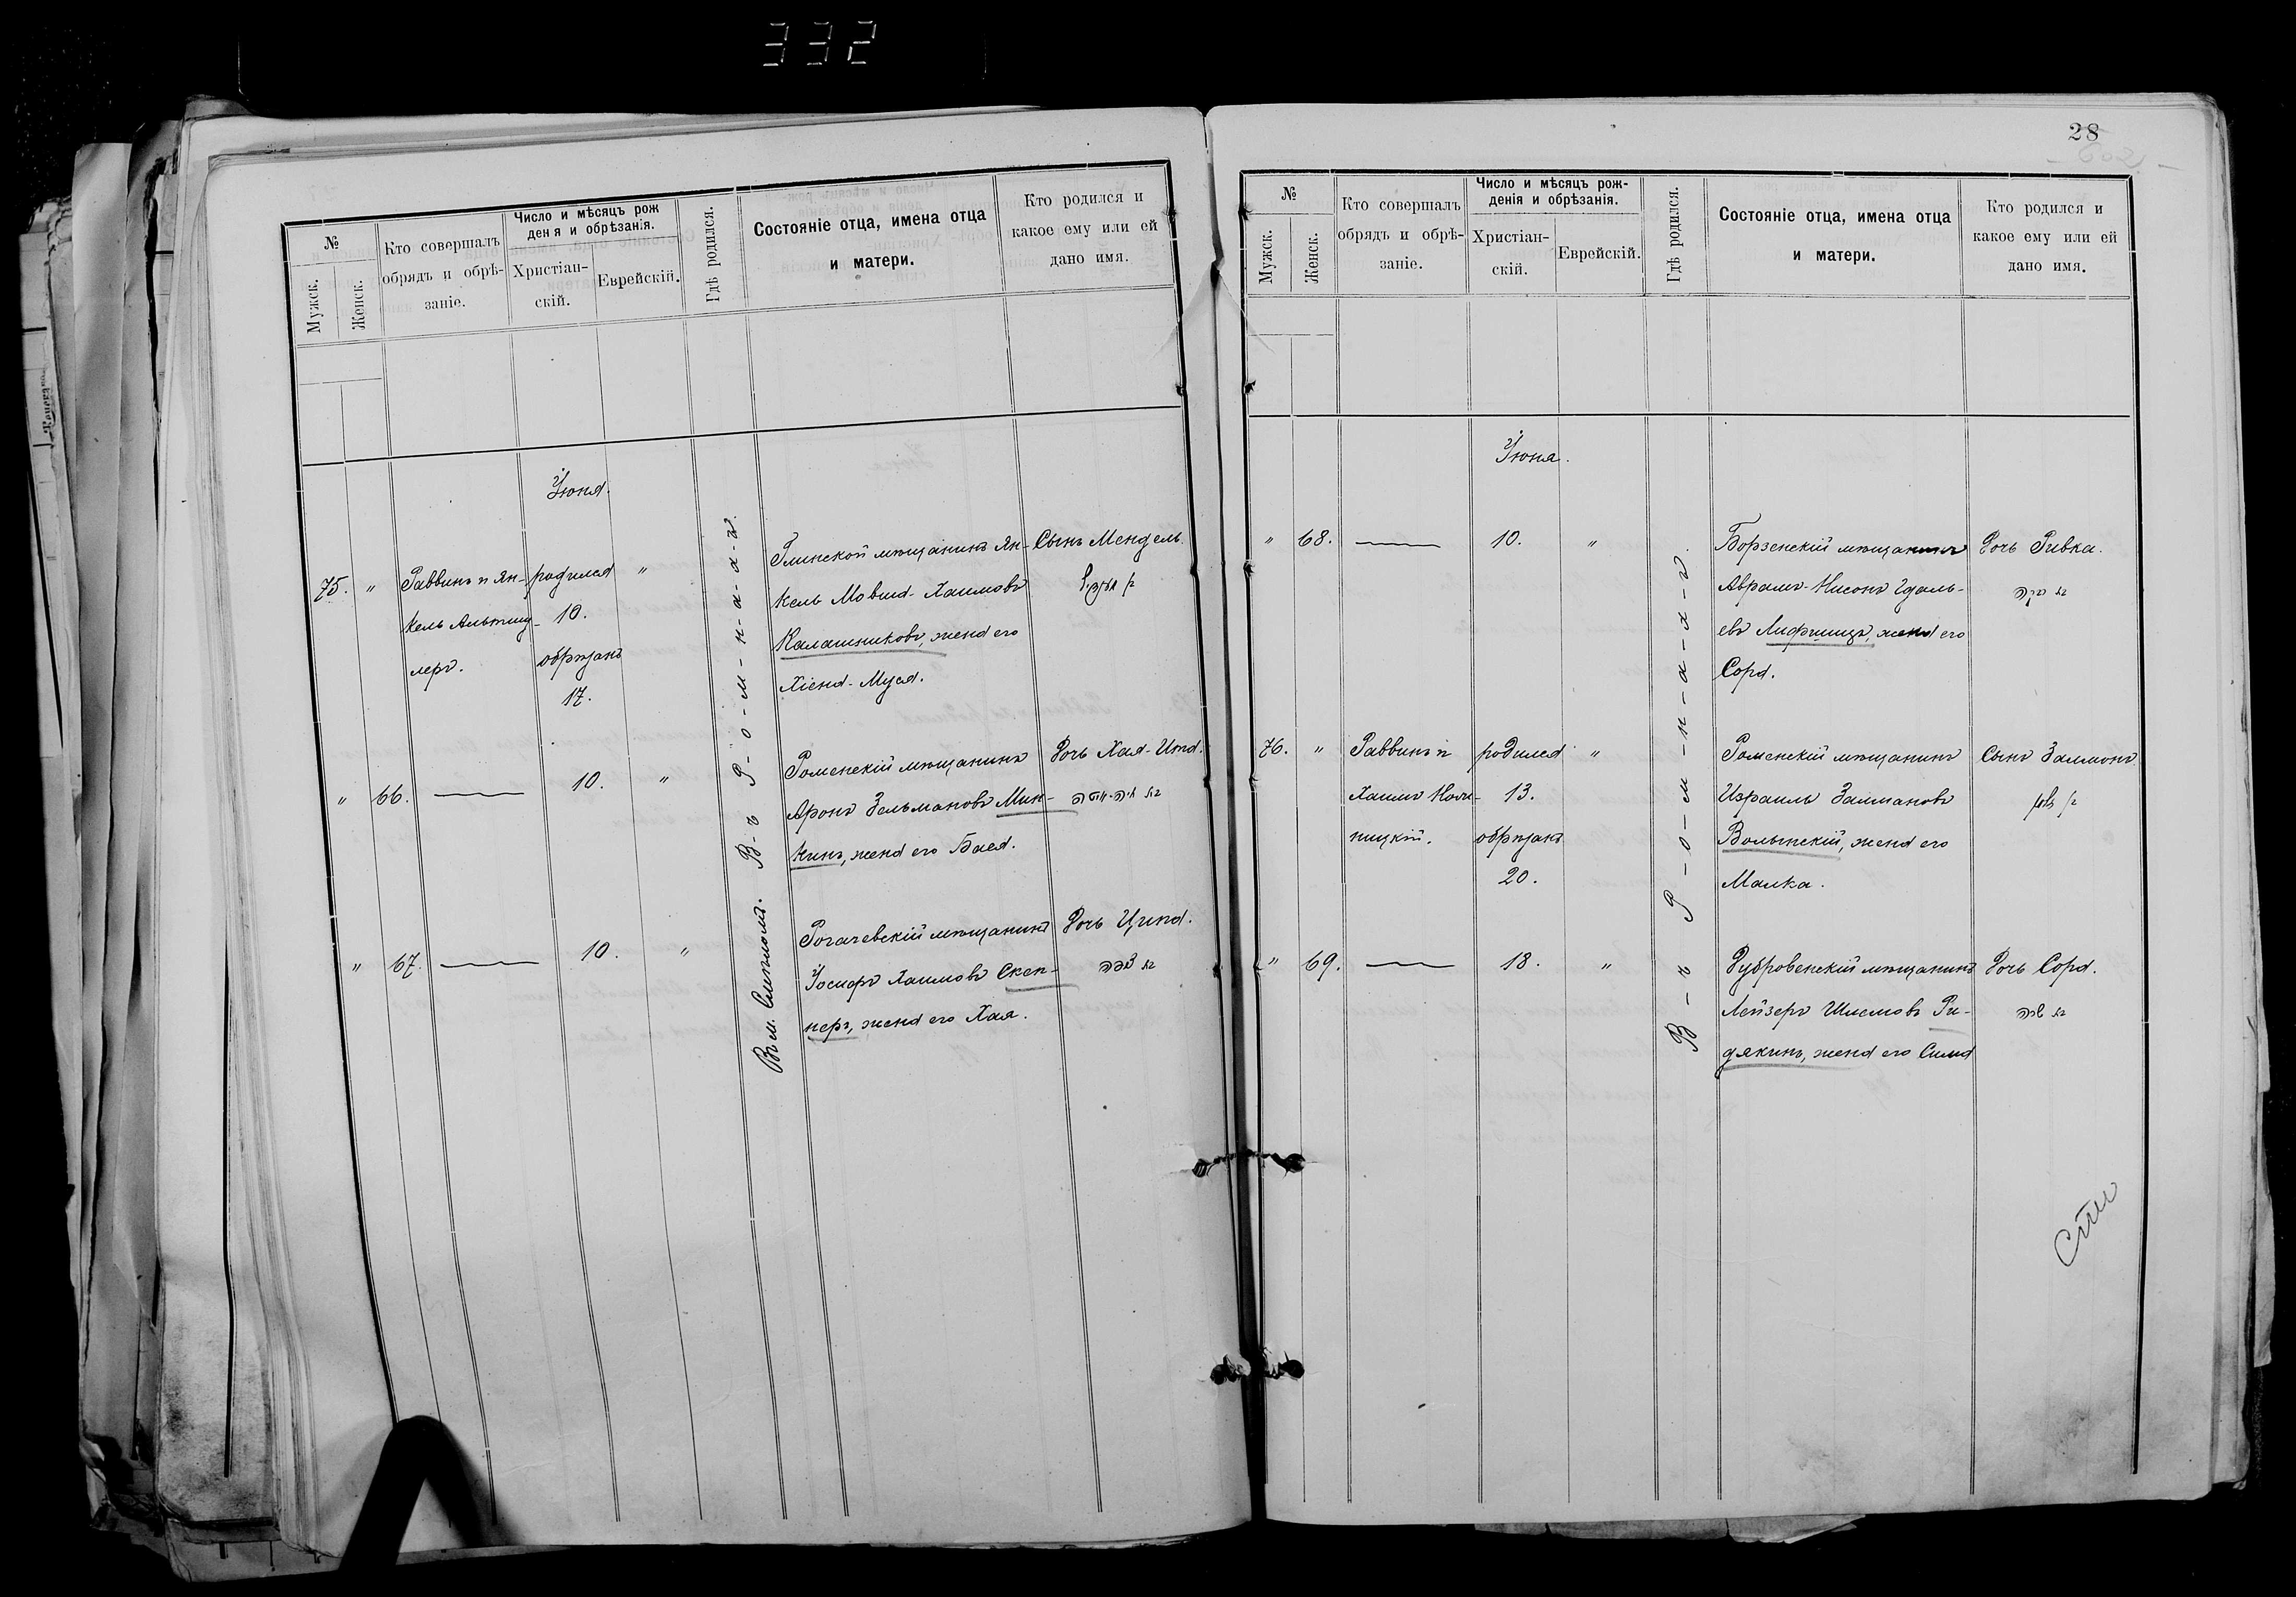 332
№
Мужск.
Женск.
Кто совершалъ
обрядъ и обрѣ-
заніе.
Число и мѣсяцъ рож
ден я и обрѣзанія.
Христіан-
скій.
Еврейскій.
Гдѣ родился.
Состояніе отца, имена отца
и матери.
Кто родился и
какое ему или ей
дано имя.
Іюня.
75. "
Раввинъ и Ян-
кель Альтшу-
леръ.
родился
10.
обрѣзанъ
17.
"
Глинской мѣщанинъ Ян-
кель Мовша-Хаимовъ
Калашниковъ, жена его
Хіена-Муся.
Сынъ Мендель.
" 66.
10.
"
Роменскій мѣщанинъ
Аронъ Зельмановъ Мин-
кинъ, жена его Бася.
Дочь Хая-Ита.
" 67.
10.
"
Рогачевскій мѣщанинъ
Іосифъ Хаимовъ Скеп-
неръ, жена его Хая.
Дочь Ципа.
В-ъ Р-о-м-н-а-х-ъ.
Въ м. Смѣломъ.
28
№
Мужск.
Женск.
Кто совершалъ
обрядъ и обрѣ-
заніе.
Число и мѣсяцъ рож-
денія и обрѣзанія.
Христіан-
скій.
Еврейскій.
Гдѣ родился.
Состояніе отца, имена отца
и матери.
Кто родился и
какое ему или ей
дано имя.
Іюня.
" 68.
10.
"
Борзенскій мѣщанинъ
Аврамъ-Нисонъ Гдаль-
евъ Лифшицъ, жена его
Сора.
Дочь Ривка.
בת רבקה
76. "
Раввинъ и
Хаимъ
ницкій.
родился
13.
обрѣзанъ
20.
"
Роменскій мѣщанинъ
Израиль Залмановъ
Волынскій, жена его
Малка.
Сынъ Залмонъ
" 69.
18.
"
Дубровенскій мѣщанинъ
Лейзеръ Шлемовъ Ри-
дякинъ, жена его Сима
Дочь Сора.
בת שרה
В-ъ Р-о-м-н-а-х-ъ.